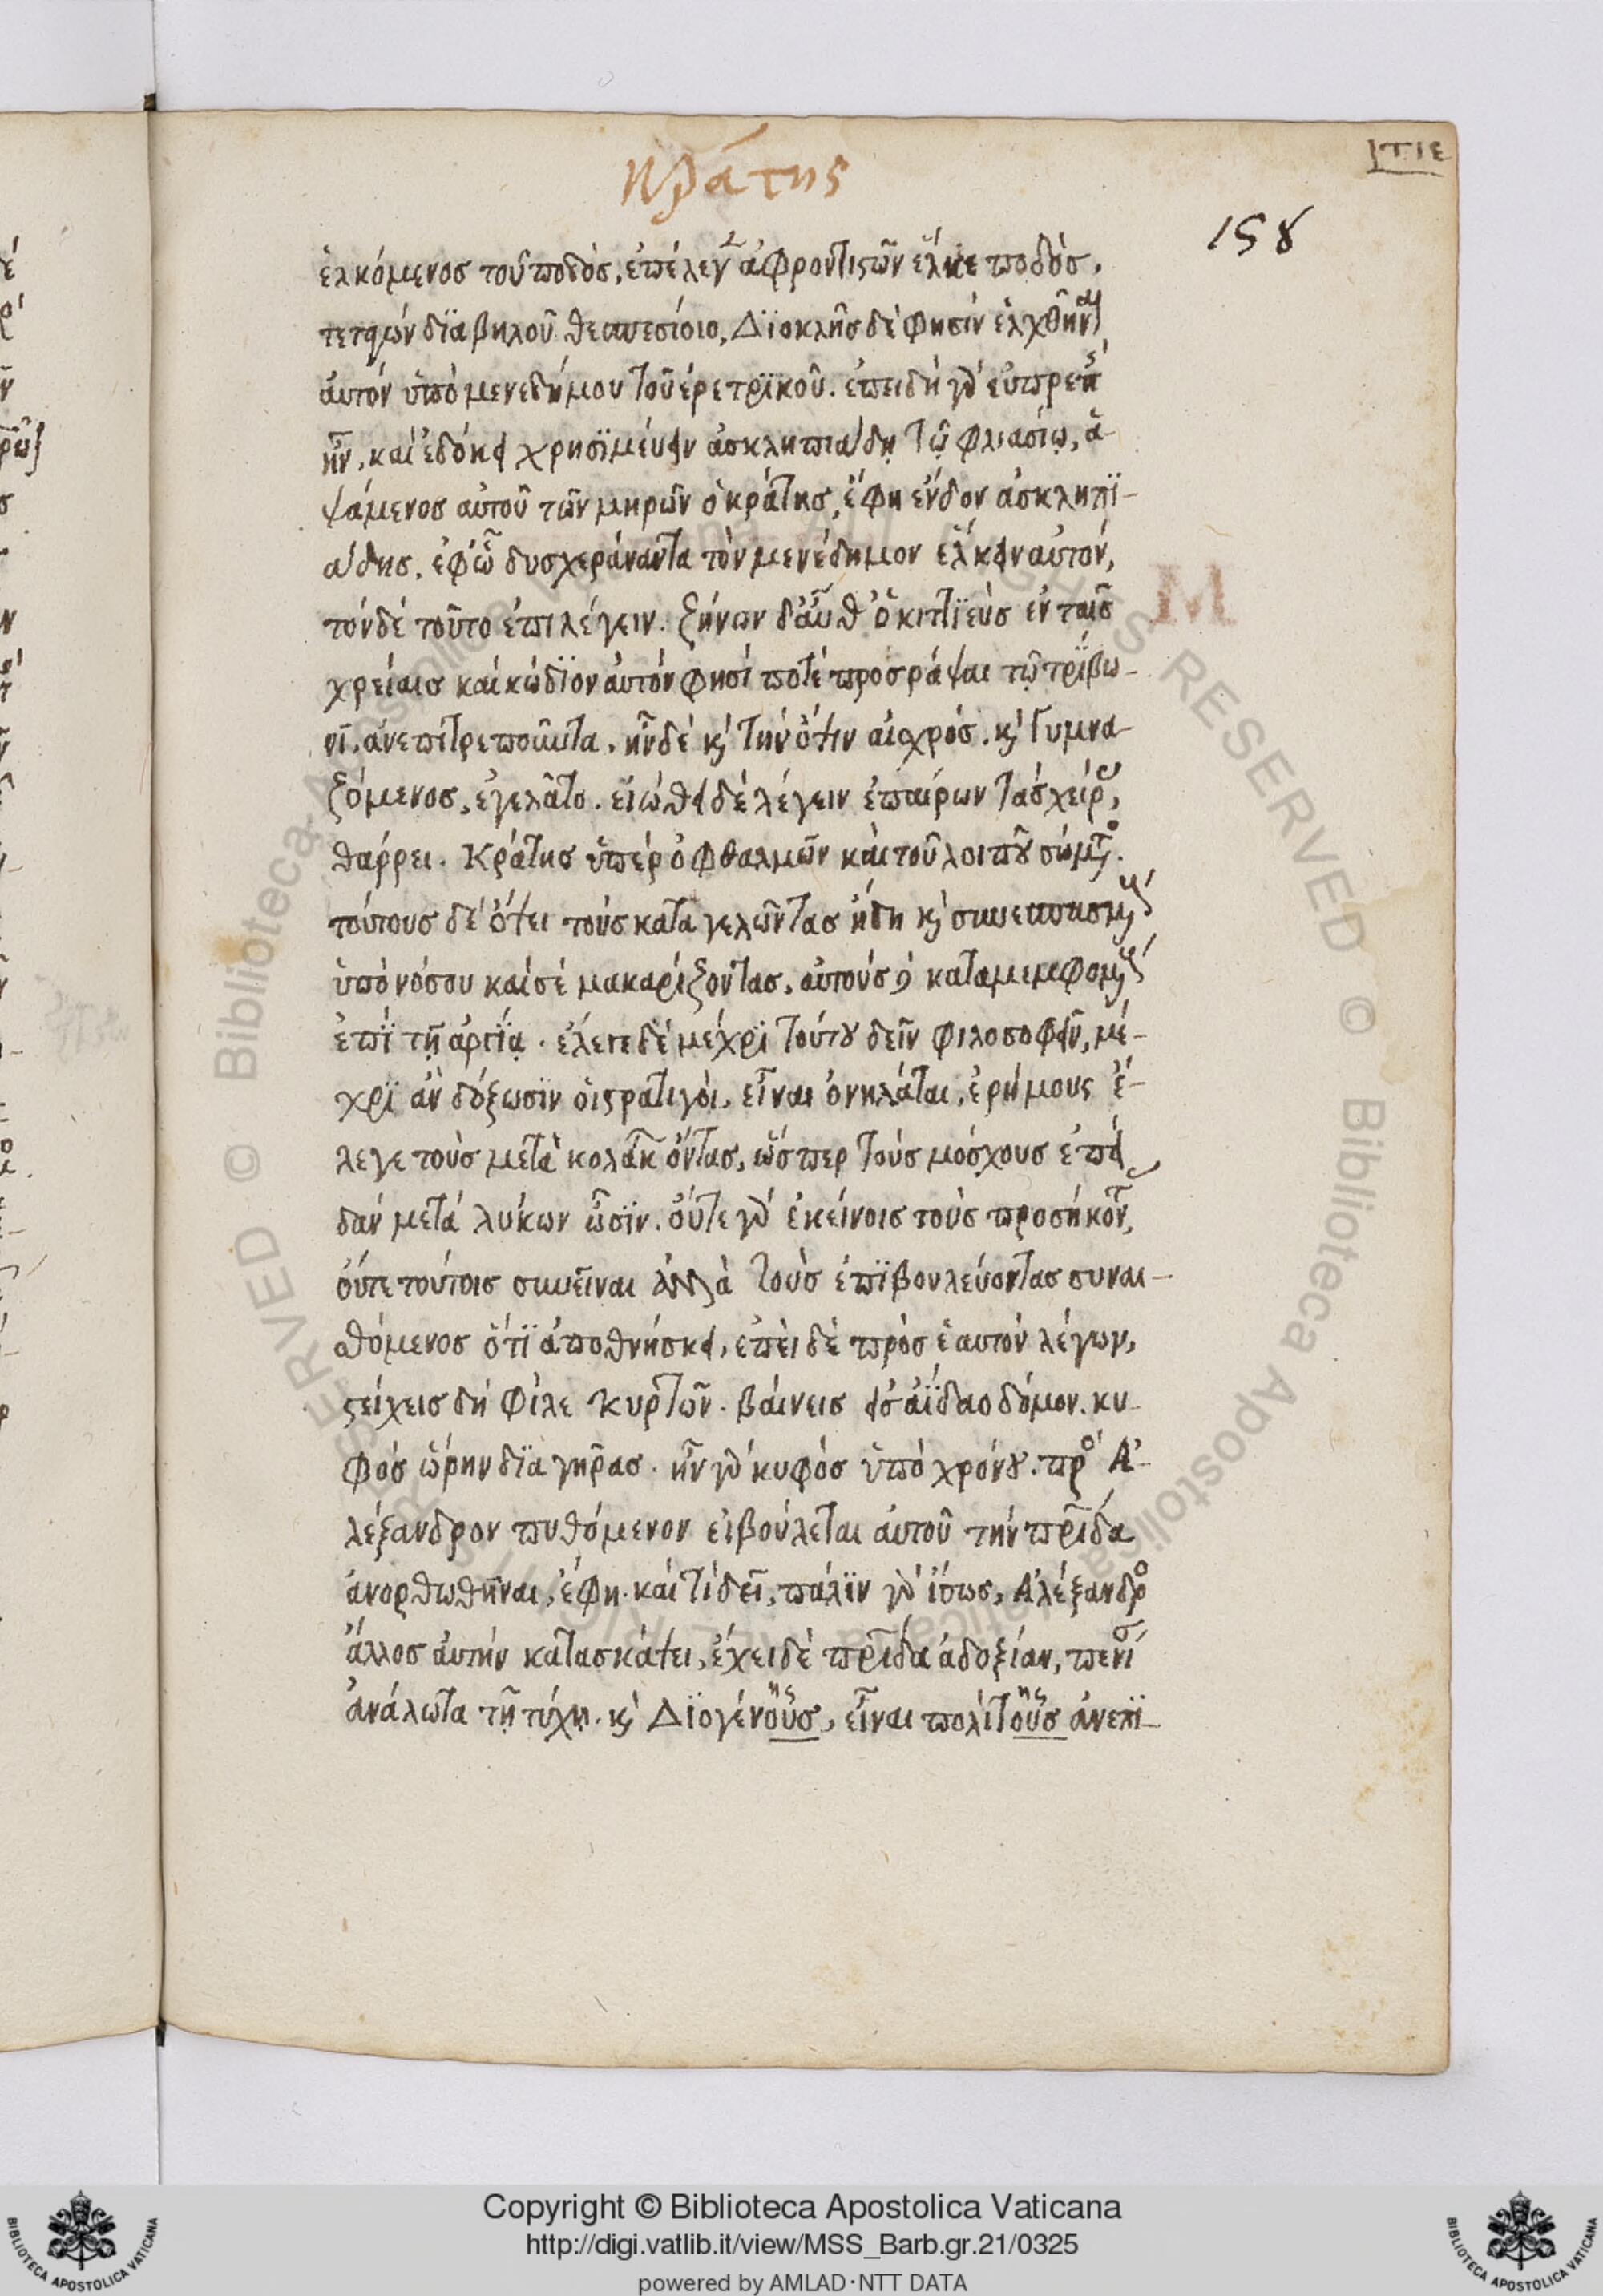 κράτης
ΤΙΕ
158
ἑλκόμενος τοῦ ποδὸς, ἐπέλεγεν ἀφροντιστῶν ἕλκε ποδὸς,
τεταγών δϊα βηλοῦ θεσπεσίοιο, Δϊοκλῆς δὲ φησίν ἑλχθῆναι
ἀυτόν ὑπὸ μενεδήμου τοῦ ἐρετρϊκοῦ. ἐπειδή γὰρ εὐπρεπής
ἦν, καί ἐδόκει χρησϊμέυειν ἀσκληπιάδῃ τῷ φλιασίῳ, ἁ-
ψάμενος αὐτοῦ τῶν μηρῶν ὁ κράτης, ἔφη ἔνδον ἀσκληπϊ-
άδης. ἐφ' ᾧ δυσχεράναντα τὸν μενέδημον ἕλκειν αὐτόν,
τόνδέ τοῦτο ἐπιλέγειν. ζήνων δ' ἀῦθ ὁ κιττϊεὺς ἐν ταῖς
χρείαις καί κώδϊον ἀυτόν φησί ποτέ προσράψαι τῷ τρϊβω-
νϊ, ἀνεπιτρεποῦντα. ἦν δέ κ τήν ὄψιν αἰσχρός. κ γυμνα-
ζόμενος, ἐγελᾶτο. εἰώθει δέ λέγειν ἐπαίρων τάς χεῖρας,
θάρρει. Κράτης ὑπέρ ὀφθαλμῶν καὶ τοῦ λοιποῦ σώματος.
τούτους δέ ὄψει τούς καταγελῶντας ἤδη κ συνεσπασμένους
ὑπὸ νόσου καί σέ μακαρίζοντας, αὐτούς δὲ καταμεμφομένους
ἐπϊ τῇ ἀργϊᾳ. ἔλεγε δέ μέχρϊ τούτου δεῖν φιλοσοφεῖν, μέ-
χρϊ ἀν δόξωσϊν οἱ στρατιγοὶ, εἶναι ὀνηλάται, ἐρήμους ἔ-
λεγε τοὺς μετὰ κολακ ὄντας, ὥσπερ τούς μόσχους ἐπει
δάν μετά λυκων ὦσϊν. οὔτε γὰρ ἐκείνοις τοὺς προσήκοντας,
οὔτε τούτοις συνεῖναι ἀλλὰ τοὺς ἐπϊβουλεύοντας συναι-
θόμενος ὅτϊ ἀποθνήσκει, ἐπῆι δέ πρὸς ἑαυτόν λέγων,
στείχεις δή φίλε κυρτῶν. βαίνεις εἰς αἰδαο δόμον. κυ-
φός ὥρην δϊα γῆρας. ἦν γὰρ κυφός ὑπό χρόνου. πρὸς Ἀ-
λέξανδρον πυθόμενον εἰ βούλεται ἀυτοῦ τήν πατρίδα
ἀνορθωθῆναι, ἔφη. καί τί δεῖ, πάλϊν γὰρ ἴσως, Ἀλέξανδρος
ἄλλος ἀυτήν κατασκάψει, ἔχει δὲ πατρίδα ἀδοξίαν, πενίαν
ἀνάλωτα τῇ τύχῃ. κ Δϊογένους, εἶναι πολίτους ἀνεπϊ-
Copyright © Biblioteca Apostolica Vaticana
http://digi.vatlib.it/view/MSS_Barb.gr.21/0325
powered by AMLAD·NTT DATA